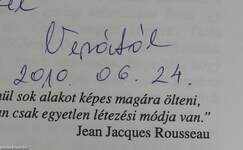 Verától
2010. 06. 24.
ül sok alakot képes magára ölteni,
an csak egyetlen létezési módja van."
Jean Jacques Rousseau